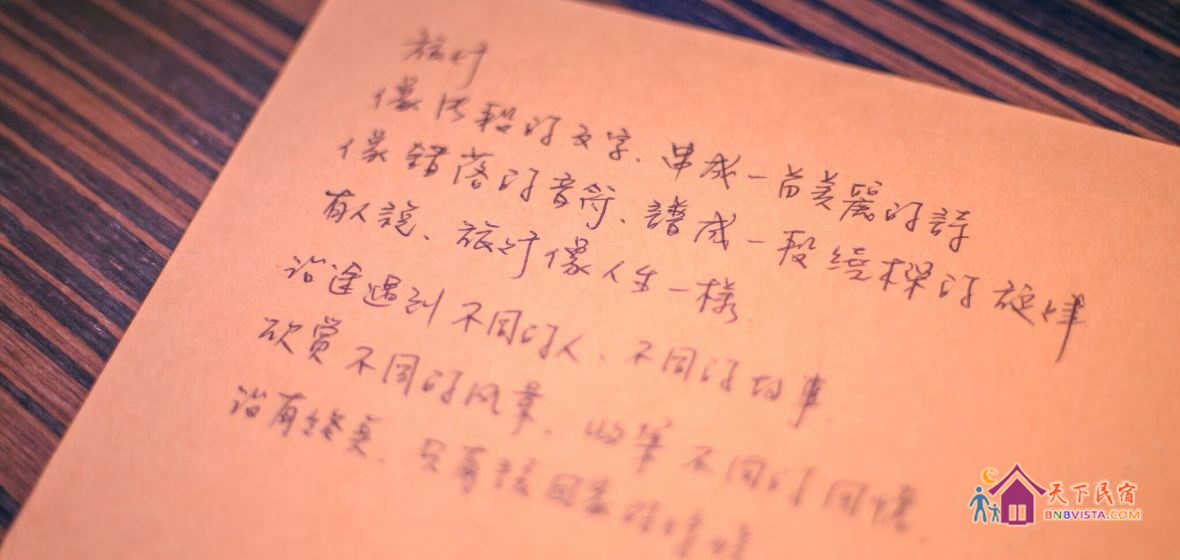 旅行
像片段的文字、串成一首美麗的詩
像錯落的音符、譜成一段繞樑的旋律
有人說、旅行像人生一樣
沿途遇到不同的人、不同的故事
欣賞不同的風景、收集不同的回憶
沒有終點、只有該回家的時候
天下民宿
BNBVISTA.COM